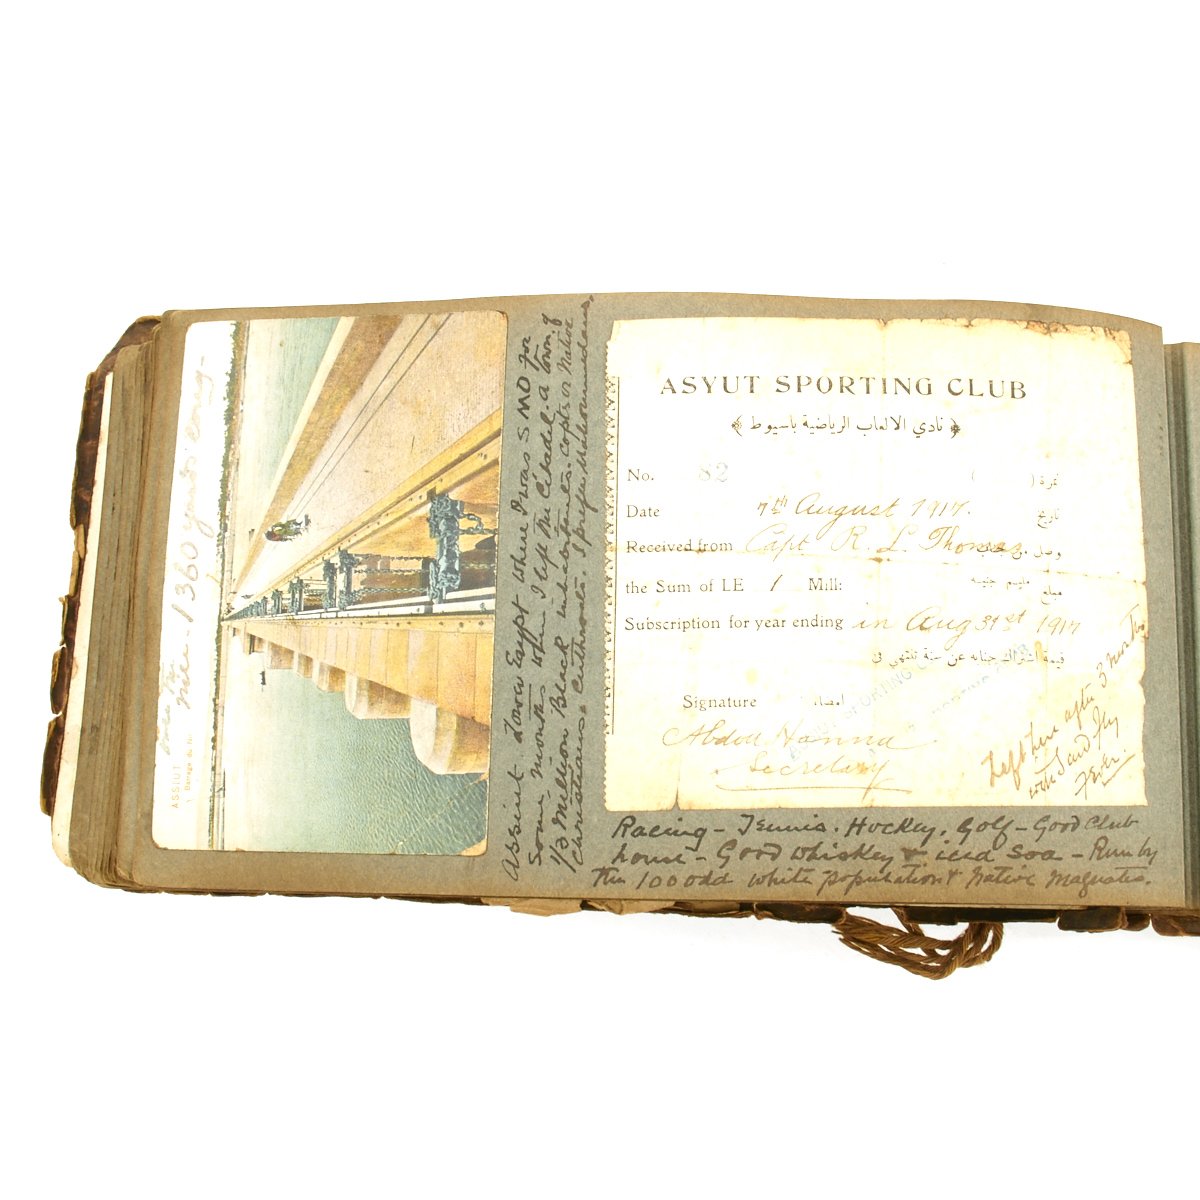 over the
Nile - 1360 yards long -
ASSIUT
Assiut Lower Egypt where I was S M O for
Some months when I left the Citadel - a town of
1/3 Million Black inhabitants. Copts or Native
Christians & Cutthroats. I prefer Mahomedans.
ASYUT SPORTING CLUB
نادي الالعاب الرياضية باسيوط
No. 82 ( ) نمرة
Date 7th August 1917. تاريخ
Received from Capt R. L. Thomas وصل من جناب
the Sum of LE 1 Mill: مليم جنيه مبلغ
Subscription for year ending in Aug 31st 1917
قيمة اشتراك جنابه عن سنة تنتهي في
Signature امضاء
Abdou Hanna
Secretary
Left here after 3 months
with Sand Fly
Fever
Racing - Tennis. Hockey. Golf - Good Club
house - Good Whiskey & iced Soa - Run by
the 100 odd white population & Native Magnates.